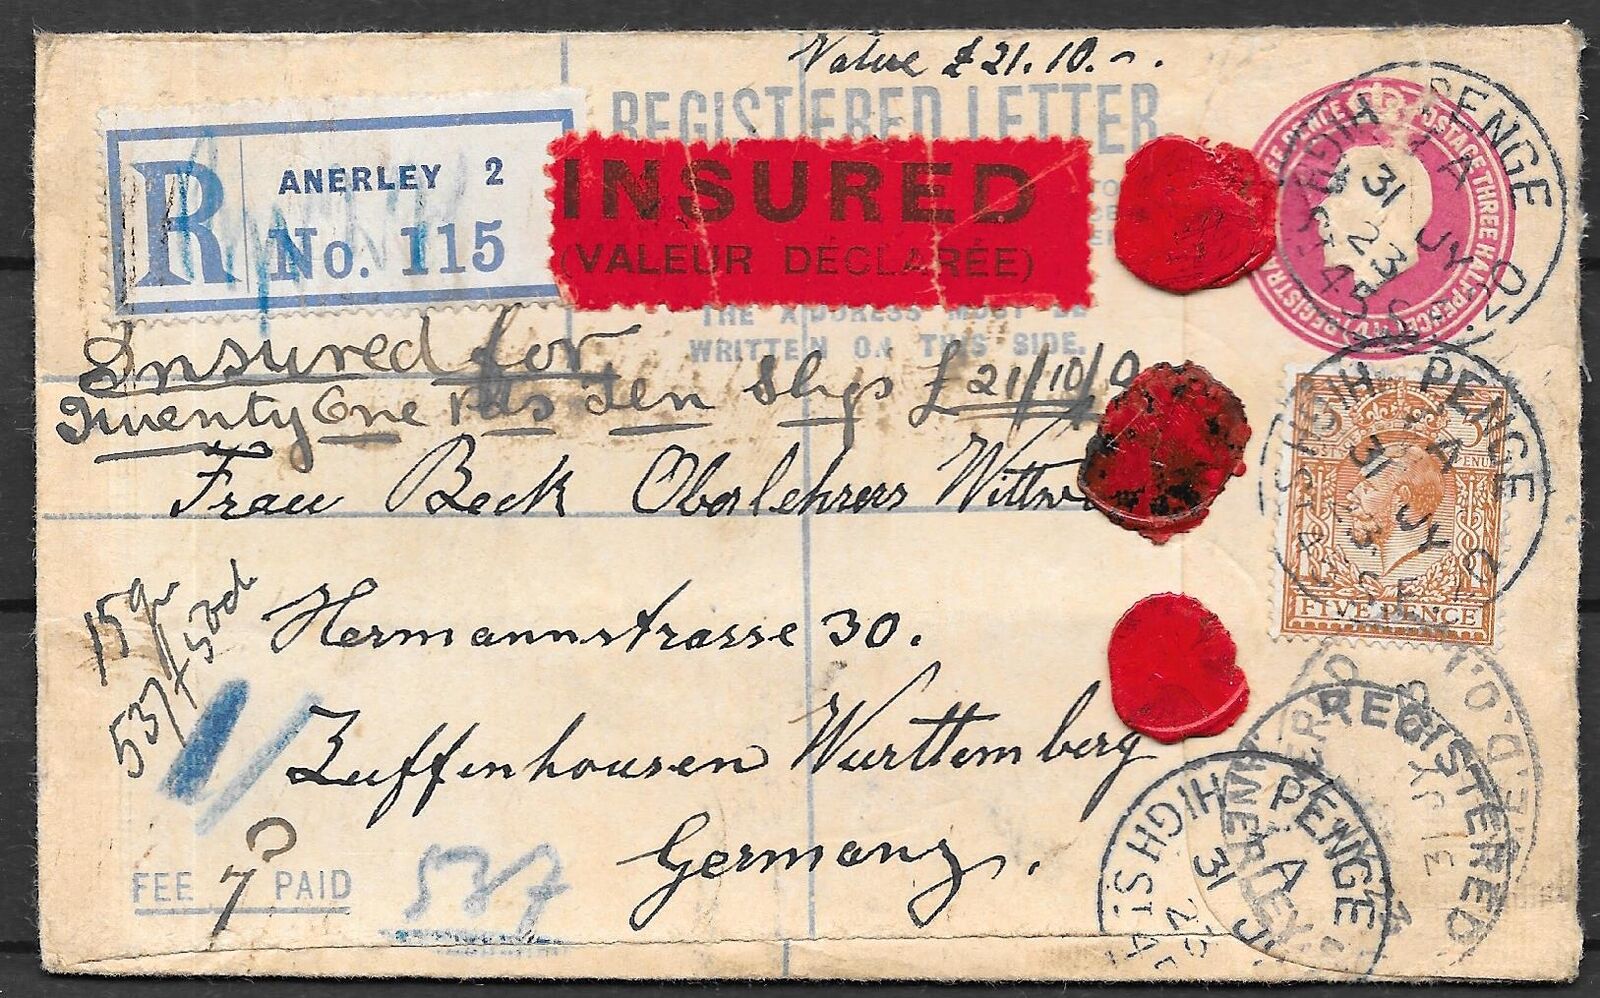 Value £21.10.-.
REGISTERED LETTER
THE ADDRESS MUST BE
WRITTEN ON THIS SIDE.
R
ANERLEY 2
No. 115
INSURED
(VALEUR DÉCLARÉE)
Insured for
Twenty One Pds Ten Shgs £21/10/0
Frau Beck Oberlehrers
Hermannstrasse 30.
Zuffenhausen Wurttemberg
Germany.
15 gr
537
FEE 7D PAID
537
POSTAGE THREE HALFPENCE
FIVE PENCE
PENGE
HIGH ST.
A
31 JY
23
PENGE
HIGH ST.
A
31 JY
23
PENGE
HIGH ST.
A
31
23
REGISTERED
ANERLEY
31 JY
REGISTERED